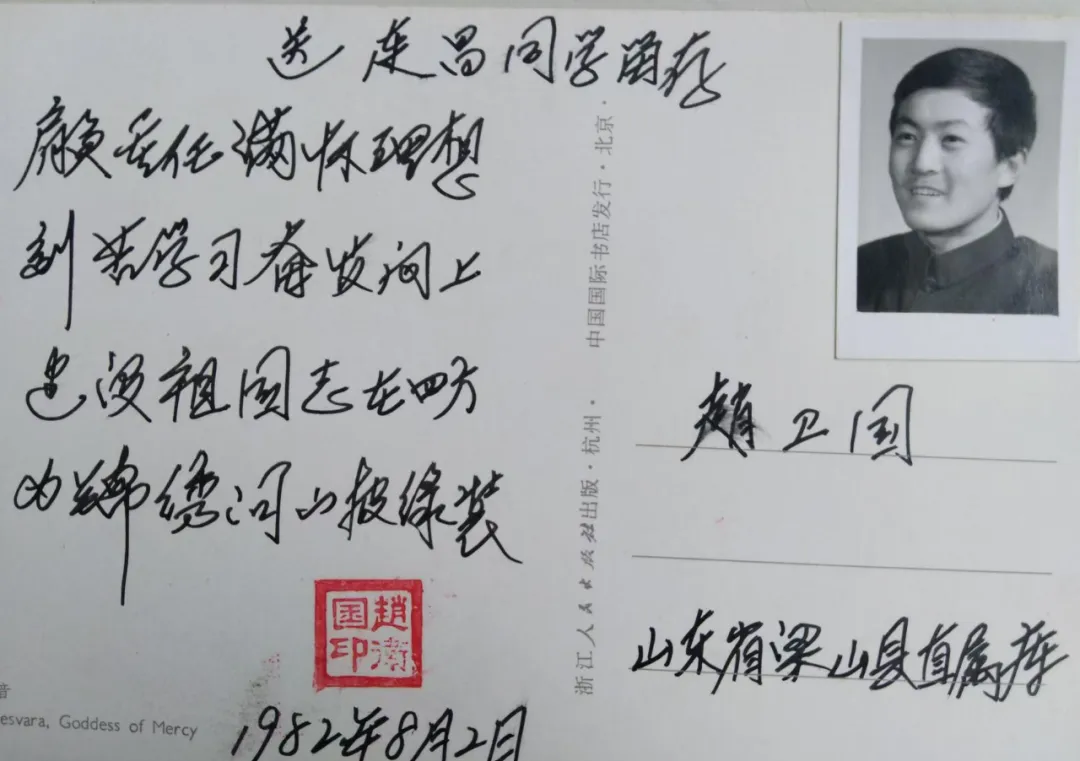 送昌同学留存
願满怀理想
刻苦学习奋发向上
建设祖国志在四方
为锦绣河山披绿装
趙衛
国印
1982年8月2日
音
esvara, Goddess of Mercy
浙江人民出版社出版·杭州· 中国国际书店发行·北京·
趙卫国
山东省梁山县直属库